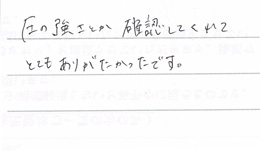 圧の強さとか 確認してくれて
とてもありがたかったです。